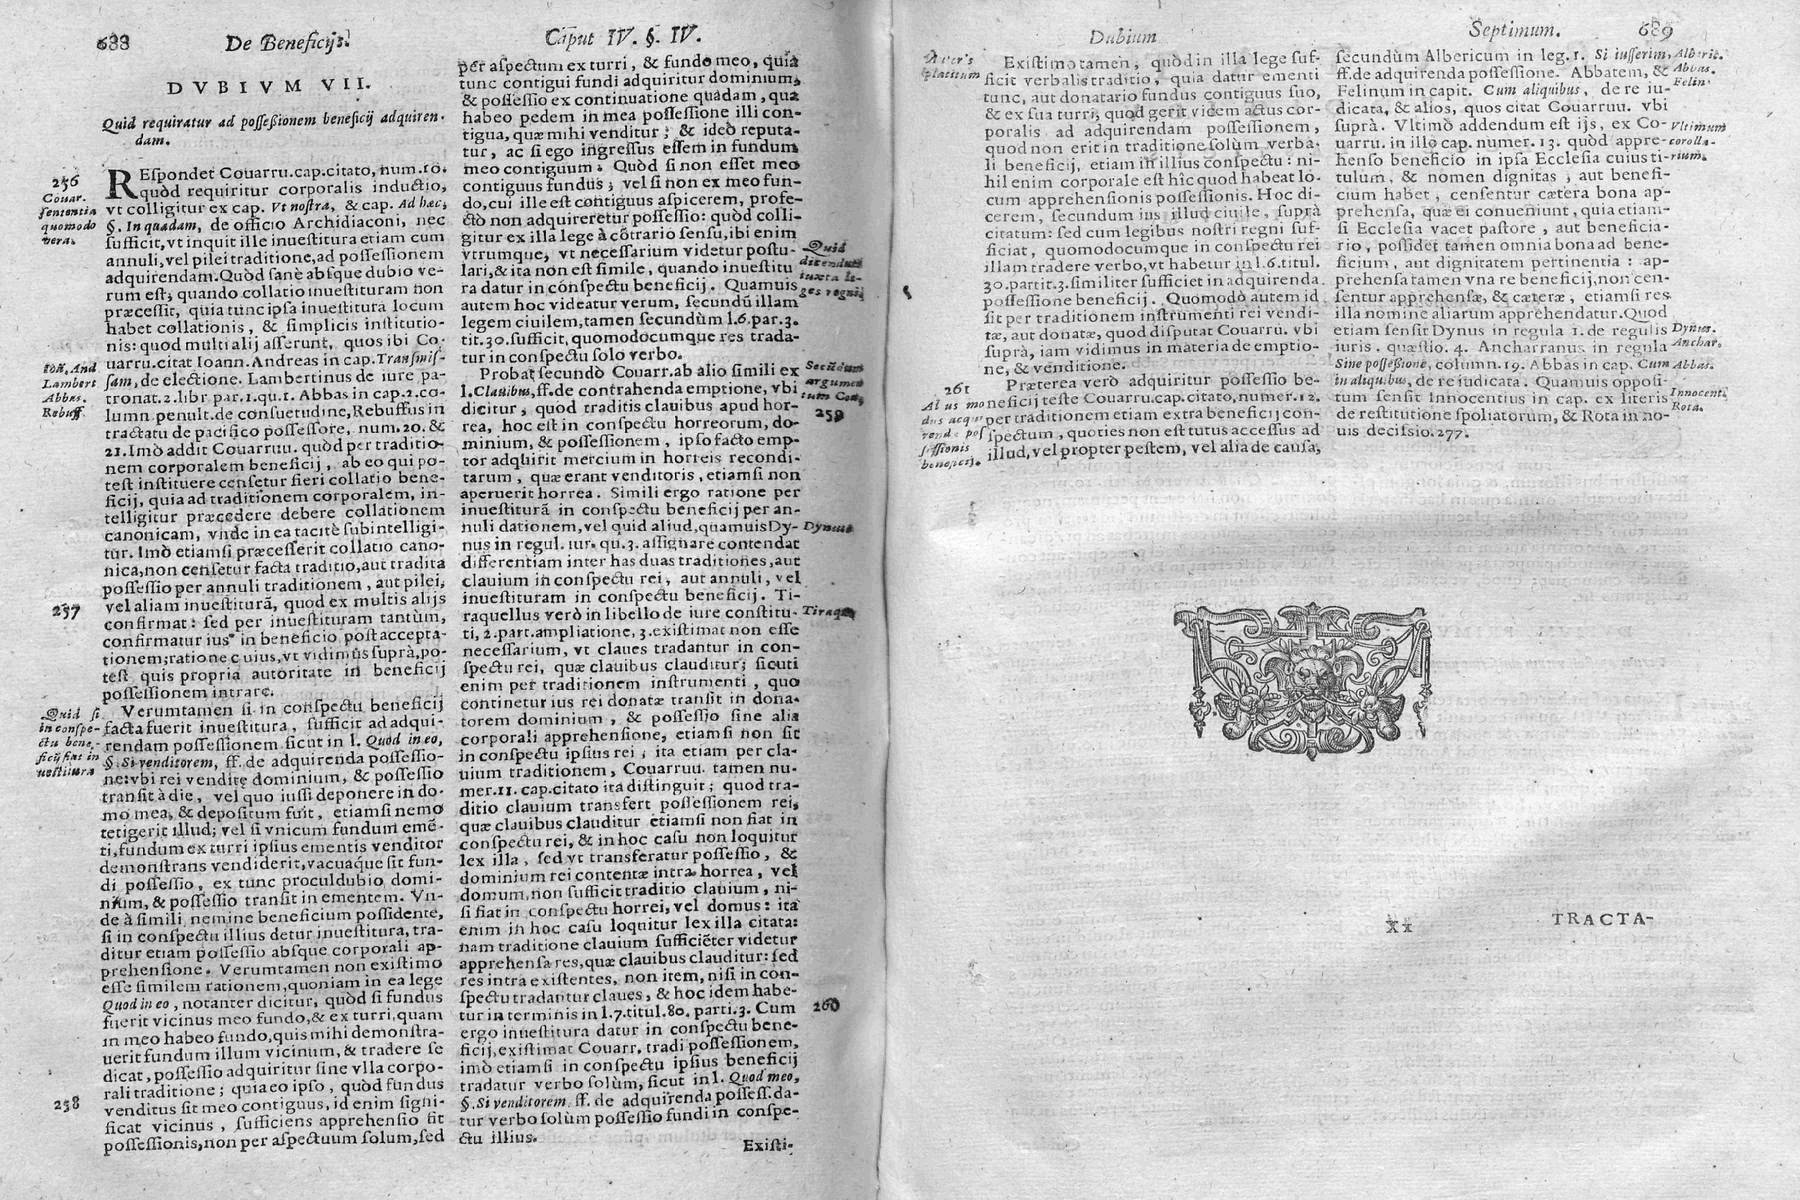 688 De Beneficijs. Caput IV. §. IV.
DVBIVM VII.
Quid requiratur ad possessionem beneficij adquiren-
dam.
256
Couar.
sententia
quomodo
vera.
REspondet Couarru. cap. citato, num. 10.
quòd requiritur corporalis inductio,
vt colligitur ex cap. Vt nostra, & cap. Ad hæc,
§. In quadam, de officio Archidiaconi, nec
sufficit, vt inquit ille inuestitura etiam cum
annuli, vel pilei traditione, ad possessionem
adquirendam. Quòd sanè absque dubio ve-
rum est, quando collatio inuestituram non
præcessit, quia tunc ipsa inuestitura locum
habet collationis, & simplicis institutio-
nis: quod multi alij asserunt, quos ibi Co-
uarru. citat Ioann. Andreas in cap. Transmis-
sam, de electione. Lambertinus de iure pa-
tronat. 2. libr par. 1. qu. 1. Abbas in cap. 2. co-
lumn penult. de consuetudine, Rebuffus in
tractatu de pacifico possessore, num. 20. &
21. Imò addit Couarruu. quòd per traditio-
nem corporalem beneficij, ab eo qui po-
test instituere censetur fieri collatio bene-
ficij, quia ad traditionem corporalem, in-
telligitur præcedere debere collationem
canonicam, vnde in ea tacitè subintelligi-
tur. Imò etiamsi præcesserit collatio cano-
nica, non censetur facta traditio, aut tradita
possessio per annuli traditionem, aut pilei,
vel aliam inuestiturã, quod ex multis alijs
confirmat: sed per inuestituram tantùm,
confirmatur ius in beneficio post accepta-
tionem; ratione cuius, vt vidimus suprà, po-
test quis propria autoritate in beneficij
possessionem intrare.
Ioã, And
Lambert
Abbas.
Rebuff.
257
Verumtamen si in conspectu beneficij
facta fuerit inuestitura, sufficit ad adqui-
rendam possessionem sicut in l. Quod in eo,
§. Si venditorem, ff. de adquirenda possessio-
ne: vbi rei venditę dominium, & possessio
transit à die, vel quo iussi deponere in do-
mo mea, & depositum fuit, etiamsi nemo
tetigerit illud; vel si vnicum fundum emẽ-
ti, fundum ex turri ipsius ementis venditor
demonstrans vendiderit, vacuaque sit fun-
di possessio, ex tunc proculdubio domi-
nium, & possessio transit in ementem. Vn-
de à simili, nemine beneficium possidente,
si in conspectu illius detur inuestitura, tra-
ditur etiam possessio absque corporali ap-
prehensione. Verumtamen non existimo
esse similem rationem, quoniam in ea lege
Quod in eo, notanter dicitur, quòd si fundus
fuerit vicinus meo fundo, & ex turri, quam
in meo habeo fundo, quis mihi demonstra-
uerit fundum illum vicinum, & tradere se
dicat, possessio adquiritur sine vlla corpo-
rali traditione; quia eo ipso, quòd fundus
venditus sit meo contiguus, id enim signi-
ficat vicinus, sufficiens apprehensio sit
possessionis, non per aspectuum solum, sed
Quid si
in conspe-
ctu bene-
ficij fiat in
uestitura
258
per aspectum ex turri, & fundo meo, quia
tunc contigui fundi adquiritur dominium,
& possessio ex continuatione quadam, qua
habeo pedem in mea possessione illi con-
tigua, quæ mihi venditur; & ideò reputa-
tur, ac si ego ingressus essem in fundum
meo contiguum. Quòd si non esset meo
contiguus fundus; vel si non ex meo fun-
do, cui ille est contiguus aspicerem, profe-
ctò non adquireretur possessio: quòd colli-
gitur ex illa lege à cõtrario sensu, ibi enim
vtrumque, vt necessarium videtur postu-
lari, & ita non est simile, quando inuestitu
ra datur in conspectu beneficij. Quamuis
autem hoc videatur verum, secundũ illam
legem ciuilem, tamen secundùm l. 6. par. 3.
tit. 30. sufficit, quomodocumque res trada-
tur in conspectu solo verbo.
Quid
dicendum
iuxta le-
ges regni,
Probat secundò Couarr. ab alio simili ex
l. Clauibus, ff. de contrahenda emptione, vbi
dicitur, quod traditis clauibus apud hor-
rea, hoc est in conspectu horreorum, do-
minium, & possessionem, ipso facto emp-
tor adquirit mercium in horreis recondi-
tarum, quæ erant venditoris, etiamsi non
aperuerit horrea. Simili ergo ratione per
inuestiturã in conspectu beneficij per an-
nuli dationem, vel quid aliud, quamuis Dy-
nus in regul. iur. qu. 3. assignare contendat
differentiam inter has duas traditiones, aut
clauium in conspectu rei, aut annuli, vel
inuestituram in conspectu beneficij. Ti-
raquellus verò in libello de iure constitu-
ti, 2. part. ampliatione, 3. existimat non esse
necessarium, vt claues tradantur in con-
spectu rei, quæ clauibus clauditur; sicuti
enim per traditionem instrumenti, quo
continetur ius rei donatæ transit in dona-
torem dominium, & possessio sine alia
corporali apprehensione, etiamsi non sit
in conspectu ipsius rei, ita etiam per cla-
uium traditionem, Couarruu. tamen nu-
mer. 11. cap. citato ita distinguit; quod tra-
ditio clauium transfert possessionem rei,
quæ clauibus clauditur etiamsi non fiat in
conspectu rei, & in hoc casu non loquitur
lex illa, sed vt transferatur possessio, &
dominium rei contentæ intra horrea, vel
domum, non sufficit traditio clauium, ni-
si fiat in conspectu horrei, vel domus: ita
enim in hoc casu loquitur lex illa citata:
nam traditione clauium sufficiẽter videtur
apprehensa res, quæ clauibus clauditur: sed
res intra existentes, non item, nisi in con-
spectu tradantur claues, & hoc idem habe-
tur in terminis in l. 7. titul. 80. parti. 3. Cum
ergo inuestitura datur in conspectu bene-
ficij, existimat Couarr. tradi possessionem,
imò etiamsi in conspectu ipsius beneficij
tradatur verbo solùm, sicut in l. Quod meo,
§. Si venditorem ff. de adquirenda possess. da-
tur verbo solùm possessio fundi in conspe-
ctu illius.
Secũdum
argumen
tum Cou,
259
Dynus
Tiraqu
260
Existi-
Dubium Septimum. 689
Existimo tamen, quòd in illa lege suf-
ficit verbalis traditio, quia datur ementi
tunc, aut donatario fundus contiguus suo,
& ex sua turri; quod gerit vicem actus cor-
poralis ad adquirendam possessionem,
quod non erit in traditione solùm verba-
li beneficij, etiam in illius conspectu: ni-
hil enim corporale est hîc quod habeat lo-
cum apprehensionis possessionis. Hoc di-
cerem, secundum ius illud ciuile, suprà
citatum: sed cum legibus nostri regni suf-
ficiat, quomodocumque in conspectu rei
illam tradere verbo, vt habetur in l. 6. titul.
30. partit. 3. similiter sufficiet in adquirenda
possessione beneficij. Quomodò autem id
sit per traditionem instrumenti rei vendi-
tæ, aut donatæ, quod disputat Couarru. vbi
suprà, iam vidimus in materia de emptio-
ne, & venditione.
placitum
Præterea verò adquiritur possessio be-
neficij teste Couarru. cap. citato, numer. 12.
per traditionem etiam extra beneficij con-
spectum, quoties non est tutus accessus ad
illud, vel propter pestem, vel alia de causa,
261
Al us mo
dus acqui
rendi pos
sessionis
beneficij.
secundùm Albericum in leg. 1. Si iusserim,
ff. de adquirenda possessione. Abbatem, &
Felinum in capit. Cum aliquibus, de re iu-
dicata, & alios, quos citat Couarruu. vbi
suprà. Vltimò addendum est ijs, ex Co-
uarru. in illo cap. numer. 13. quòd appre-
henso beneficio in ipsa Ecclesia cuius ti-
tulum, & nomen dignitas, aut benefi-
cium habet, censentur cætera bona ap-
prehensa, quæ ei conueniunt, quia etiam-
si Ecclesia vacet pastore, aut beneficia-
rio, possidet tamen omnia bona ad bene-
ficium, aut dignitatem pertinentia: ap-
prehensa tamen vna re beneficij, non cen-
sentur apprehensæ, & cæteræ, etiamsi res
illa nomine aliarum apprehendatur. Quod
etiam sensit Dynus in regula 1. de regulis
iuris. quæstio. 4. Ancharranus in regula
Sine possessione, column. 19. Abbas in cap. Cum
in aliquibus, de re iudicata. Quamuis opposi-
tum sensit Innocentius in cap. ex literis
de restitutione spoliatorum, & Rota in no-
uis decisio. 277.
Alberic.
Abbas.
Felin.
Vltimum
corolla-
rium.
Dynus.
Anchar.
Abbas.
Innocent.
Rota.
Xx TRACTA-